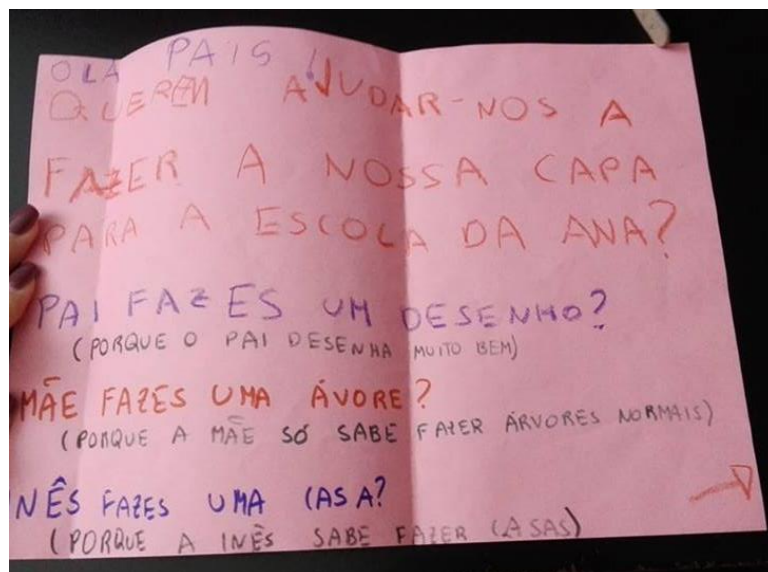 OLA PAIS!
QUEREM AJUDAR-NOS A
FAZER A NOSSA CAPA
PARA A ESCOLA DA ANA?
PAI FAZES UM DESENHO?
(PORQUE O PAI DESENHA MUITO BEM)
MÃE FAZES UMA ÁVORE?
(PORQUE A MÃE SÓ SABE FAZER ÁRVORES NORMAIS)
NÊS FAZES UMA CASA?
(PORQUE A INÊS SABE FAZER CASAS)